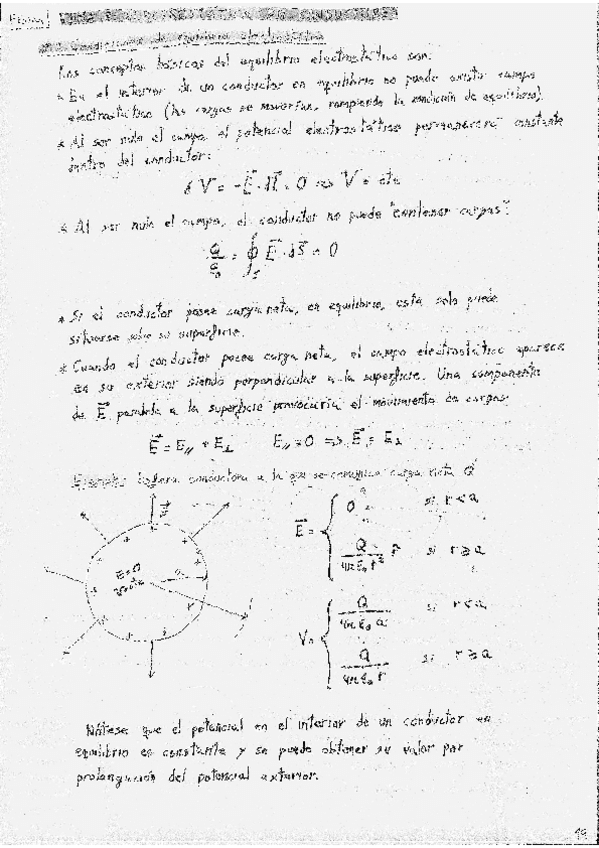 Los conceptos básicos del equilibrio electrostático son:
* En el interior de un conductor en equilibrio no puede existir campo
electrostático (las cargas se moverían, rompiendo la condición de equilibrio).
* Al ser nulo el campo el potencial electrostático permanecerá constante
dentro del conductor:
dV = -E⃗·dl⃗ = 0 => V = cte
* Al ser nulo el campo, el conductor no puede "contener cargas":
Q/ε₀ = ∮_S E⃗·dS⃗ = 0
* Si el conductor posee carga neta, en equilibrio, esta solo puede
situarse sobre su superficie.
* Cuando el conductor posee carga neta, el campo electrostático aparece
en su exterior siendo perpendicular a la superficie. Una componente
de E⃗ paralela a la superficie provocaría el movimiento de cargas
E⃗ = E// + E⊥ E// = 0 => E⃗ = E⊥
Ejemplo: Esfera conductora a la que se comunica carga neta Q
E⃗ = { 0 si r < a
Q/4πε₀r² r̂ si r ≥ a
E=0
V=cte
a
V = { Q/4πε₀a si r < a
Q/4πε₀r si r ≥ a
Nótese que el potencial en el interior de un conductor en
equilibrio es constante y se puede obtener su valor por
prolongación del potencial exterior.